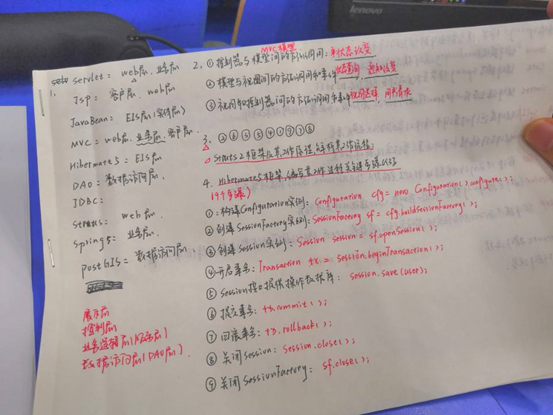 lenovo
1.
servlet: web层、业务层
Jsp: 客户层、web层
JavaBean: EIS层(实体层)
MVC: web层、业务层、客户层
Hibernate5: EIS层
DAO: 数据访问层
JDBC:
Struts2: web层
Spring5: 业务层
PostGIS: 数据访问层
展示层
控制层
业务逻辑层(服务层)
数据访问层(DAO层)
MVC模型
2. ① 控制器与模型间的方法调用: 状态改变
② 模型与视图间的方法调用和事件 状态查询、通知改变
③ 视图和控制器间的方法调用和事件 视图选择、用户请求
3.
Struts2框架及其工作原理
4. Hibernate5框架,编写其工作过程关键步骤代码
(9个步骤)
① 构建Configuration实例: Configuration cfg = new Configuration().configure();
② 创建SessionFactory实例: SessionFactory sf = cfg.buildSessionFactory();
③ 创建Session实例: Session session = sf.openSession();
④ 开启事务: Transaction tx = session.beginTransaction();
⑤ Session接口提供操作数据库: session.save(user);
⑥ 提交事务: tx.commit();
⑦ 回滚事务: tx.rollback();
⑧ 关闭Session: session.close();
⑨ 关闭SessionFactory: sf.close();